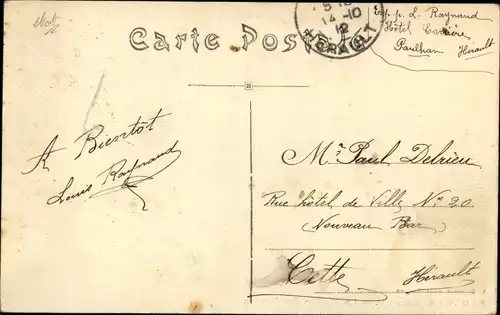 Carte Posta
14-10
12
HERAULT
Exp. p. L. Raynaud
Hôtel Carrière
Paulhan Hérault
A Bientôt
Louis Raynaud
Mr Paul Delrieu
Rue hôtel de Ville No 20
(Nouveau Bar)
Cette Hérault